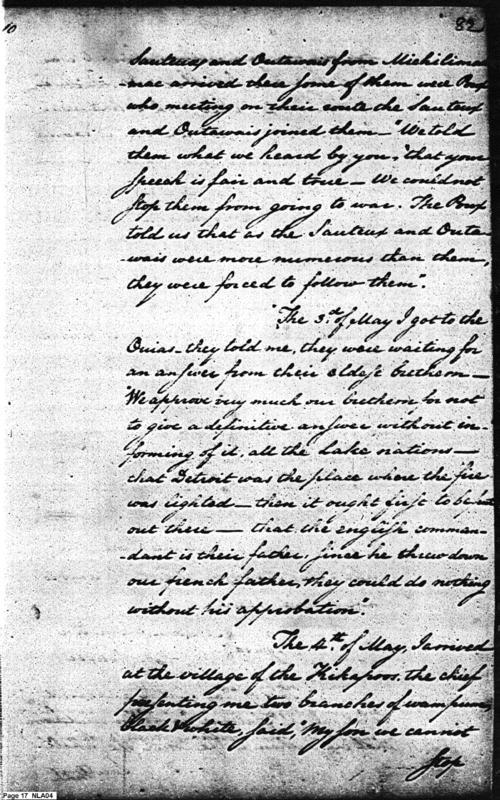 10
82
Sauteux and Outawais from Michilimac
-nac arrived there some of them were Poux
who meeting on their route the Sauteux
and Outawais joined them — "We told
them what we heard by you, that your
speech is fair and true — We could not
stop them from going to war. The Poux
told us that as the Sauteux and Outa-
-wais were more numerous than them,
they were forced to follow them".
"The 3.d of May I got to the
Ouias - they told me, they were waiting for
an answer from their eldest brethern —
"We approve very much our brethern for not
to give a definitive answer without in-
forming of it, all the Lake nations —
that Detroit was the place where the fire
was lighted — then it ought first to be put
out there — that the english comman-
-dant is their father, since he threw down
our french father, they could do nothing
without his approbation".
The 4.th of May, I arrived
at the village of the Kikapoos. the chief
presenting me two branches of wampum,
black & white, said, "My son we cannot
stop
Page 17 NLA04